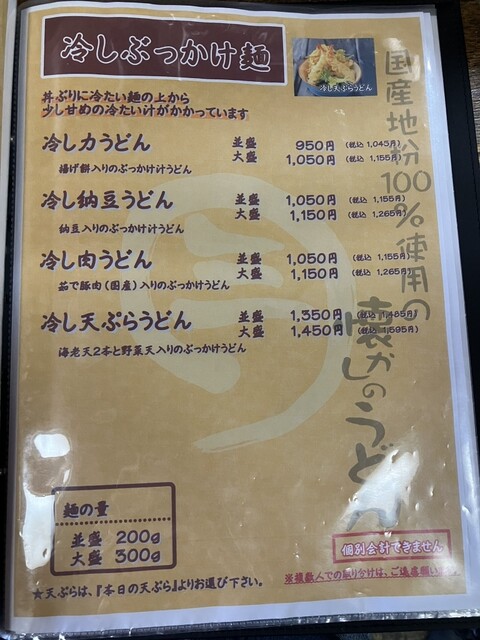 冷しぶっかけ麺
冷し天ぷらうどん
丼ぶりに冷たい麺の上から
少し甘めの冷たい汁がかかっています
冷し力うどん 並盛 950円 (税込 1,045円)
大盛 1,050円 (税込 1,155円)
揚げ餅入りのぶっかけ汁うどん
冷し納豆うどん 並盛 1,050円 (税込 1,155円)
大盛 1,150円 (税込 1,265円)
納豆入りのぶっかけ汁うどん
冷し肉うどん 並盛 1,050円 (税込 1,155円)
大盛 1,150円 (税込 1,265円)
茹で豚肉(国産)入りのぶっかけうどん
冷し天ぷらうどん 並盛 1,350円 (税込 1,485円)
大盛 1,450円 (税込 1,595円)
海老天2本と野菜天入りのぶっかけうどん
国産地粉100%使用の
懐かしのうどん
麺の量
並盛 200g
大盛 300g
個別会計できません
※複数人での取り分けは、ご遠慮願います
★天ぷらは、『本日の天ぷら』よりお選び下さい。